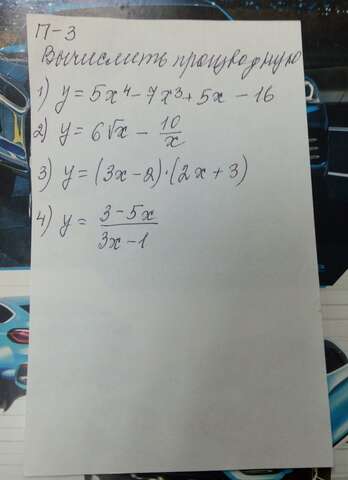 П-3
Вычислить производную
1) y = 5x⁴ - 7x³ + 5x - 16
2) y = 6√x - 10/x
3) y = (3x - 2)·(2x + 3)
4) y = (3 - 5x)/(3x - 1)